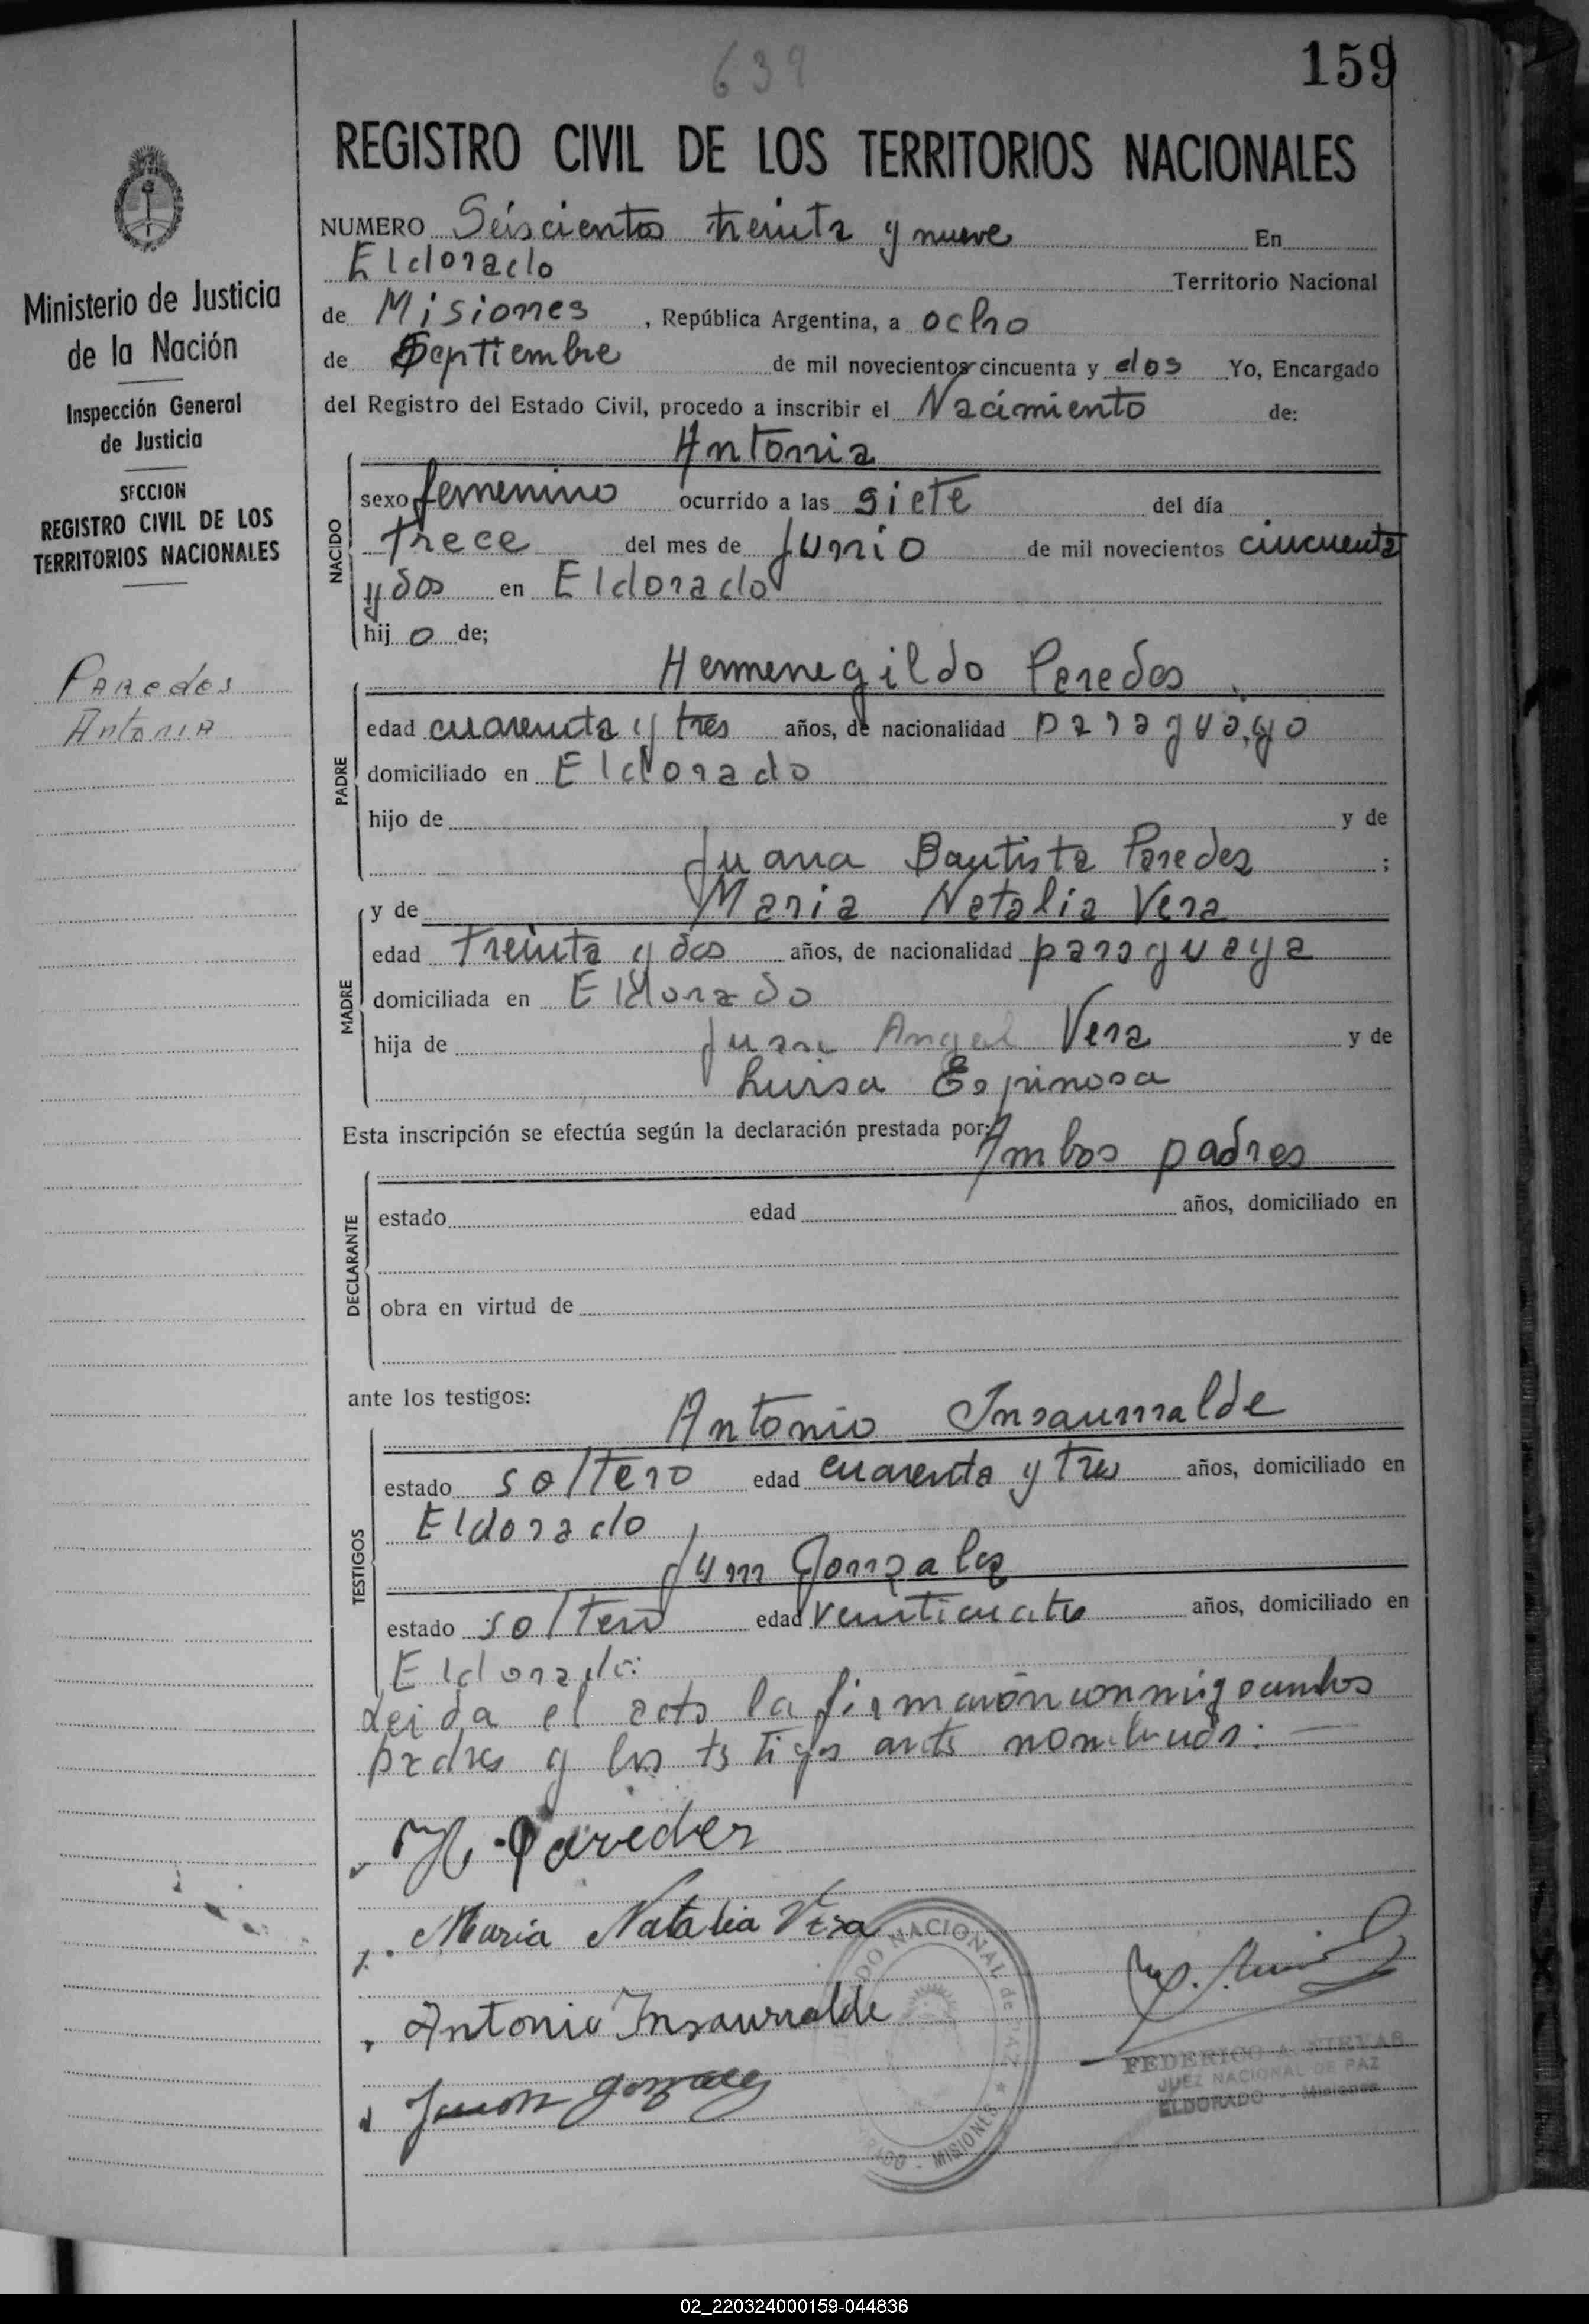 639
159
REGISTRO CIVIL DE LOS TERRITORIOS NACIONALES
Ministerio de Justicia
de la Nación
Inspección General
de Justicia
SECCION
REGISTRO CIVIL DE LOS
TERRITORIOS NACIONALES
Paredes
Antonia
NUMERO Seiscientos treinta y nueve En
Eldorado Territorio Nacional
de Misiones, República Argentina, a ocho
de Septiembre de mil novecientos cincuenta y dos Yo, Encargado
del Registro del Estado Civil, procedo a inscribir el Nacimiento de:
Antonia
NACIDO
sexo femenino ocurrido a las siete del día
trece del mes de Junio de mil novecientos cincuenta
y dos en Eldorado
hij o de;
Hermenegildo Peredes
PADRE
edad cuarenta y tres años, de nacionalidad paraguayo
domiciliado en Eldorado
hijo de y de
Juana Bautista Paredes ;
MADRE
y de Maria Natalia Vera
edad treinta y dos años, de nacionalidad paraguaya
domiciliada en Eldorado
hija de Juan Angel Vera y de
Luisa Espinosa
Esta inscripción se efectúa según la declaración prestada por:
Ambos padres
DECLARANTE
estado edad años, domiciliado en
obra en virtud de
ante los testigos:
Antonio Insaurralde
TESTIGOS
estado soltero edad cuarenta y tres años, domiciliado en
Eldorado
Juan Gonzalez
estado soltero edad veinticuatro años, domiciliado en
Eldorado:
Leida el acta la firmaron conmigo ambos
padres y los testigos antes nombrados:
H. Paredes
Maria Natalia Vera
Antonio Insaurralde
Juan Gonzalez
DO NACIONAL de PAZ
MISIONES
FEDERICO A. CUEVAS
JUEZ NACIONAL DE PAZ
ELDORADO - Misiones
02_220324000159-044836